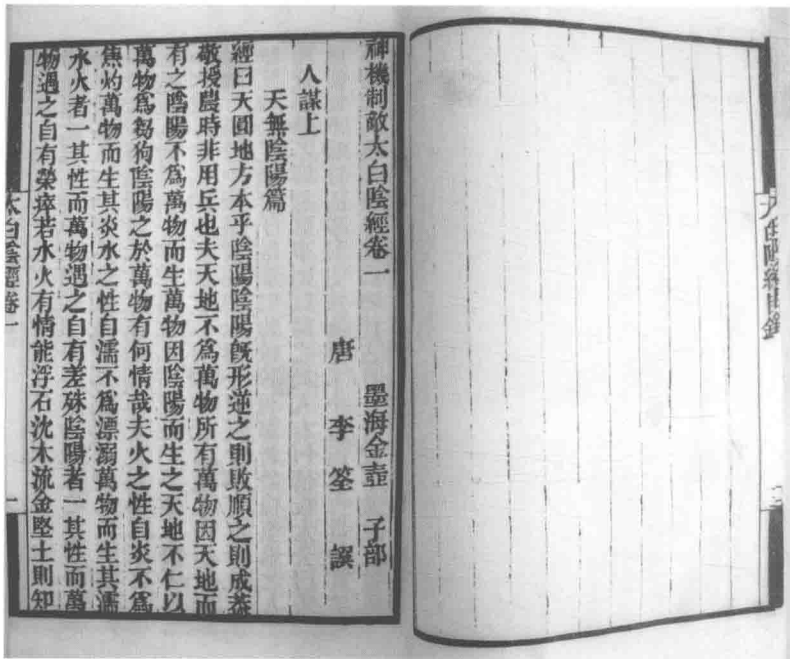 太白陰經目錄
神機制敵太白陰經卷一 墨海金壺 子部
唐 李筌 譔
人謀上
天無陰陽篇
經曰天圓地方本乎陰陽陰陽旣形逆之則敗順之則成蓋
敬授農時非用兵也夫天地不爲萬物所有萬物因天地而
有之陰陽不爲萬物而生萬物因陰陽而生之天地不仁以
萬物爲芻狗陰陽之於萬物有何情哉夫火之性自炎不爲
焦灼萬物而生其炎水之性自濡不爲漂溺萬物而生其濡
水火者一其性而萬物遇之自有差殊陰陽者一其性而萬
物遇之自有榮瘁若水火有情能浮石沈木流金堅土則知
太白陰經卷一 一